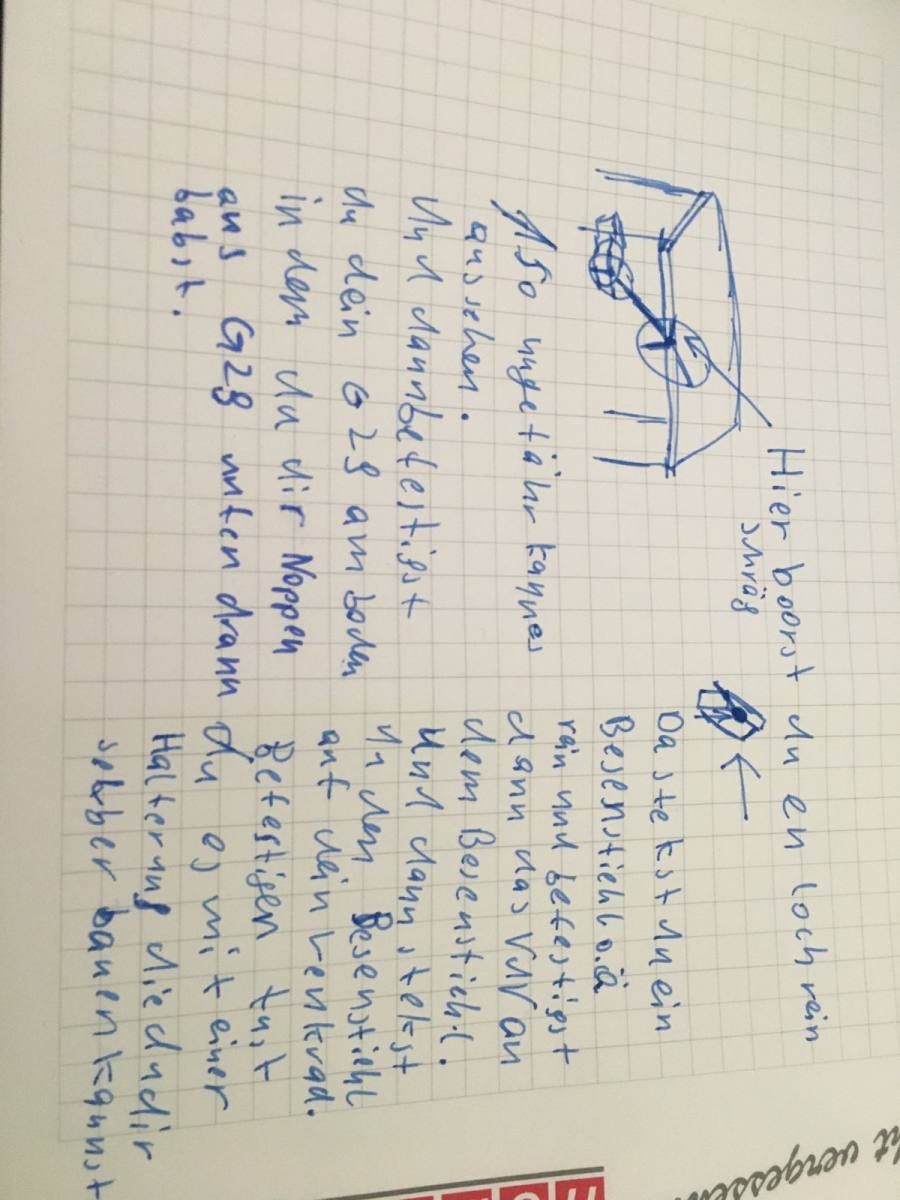 Hier boorst du en loch rein
schräg
Da stekst du ein
Besenstiehl o.ä
rein und befestigst
dann das VW an
dem Besenstiehl.
Und dann stekst
du den Besenstiehl
auf dein Lenkrad.
Befestigen tust
du es mit einer
Halterung die du dir
selber bauen kannst
Also ungefähr kann es
aussehen.
Und dann befestigst
du dein G29 am boden
in dem du dir Noppen
ans G29 unten drann
babst.
ht vergessen